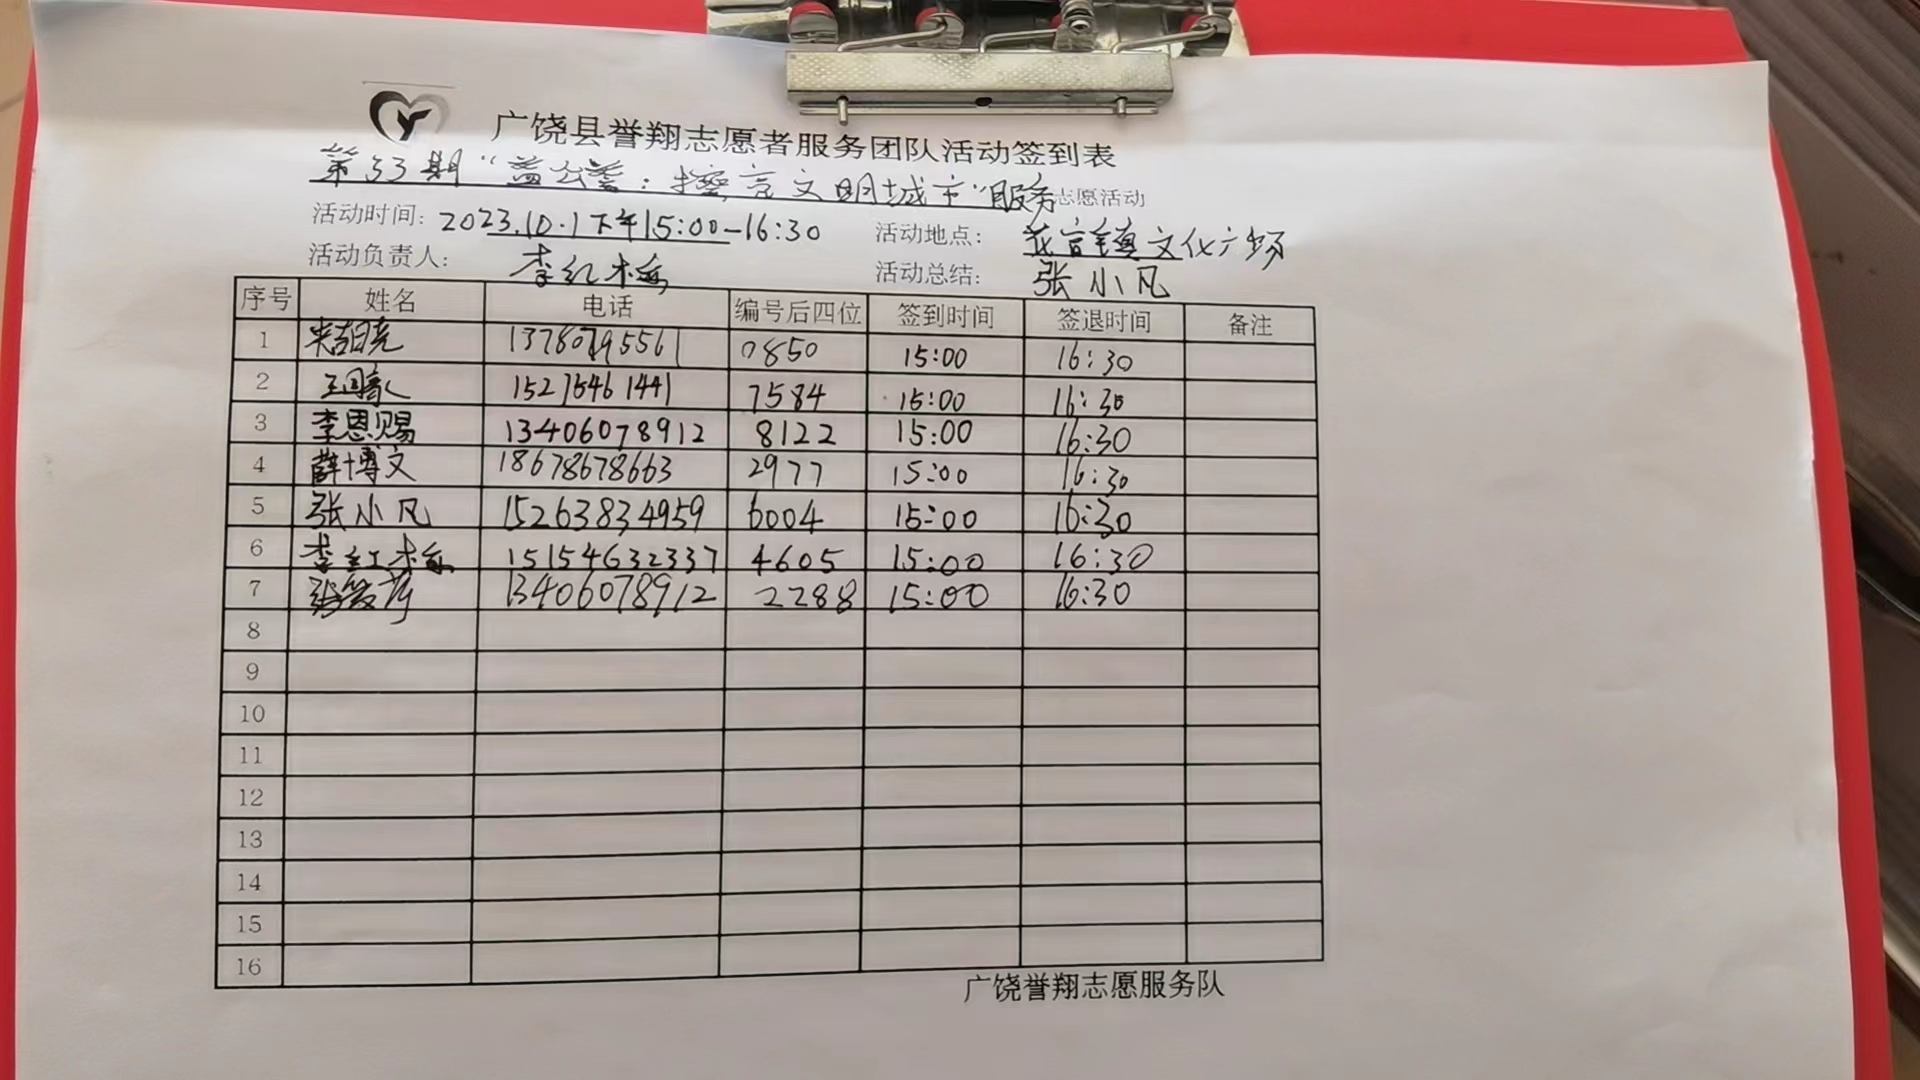 广饶县誉翔志愿者服务团队活动签到表
第33期“益公益：擦亮文明城市”服务志愿活动
活动时间: 2023.10.1下午15:00-16:30 活动地点: 花官镇文化广场
活动负责人: 李红梅 活动总结: 张小凡
序号 姓名 电话 编号后四位 签到时间 签退时间 备注
1 13780795561 0850 15:00 16:30
2 15275461441 7584 15:00 16:30
3 李恩赐 13406078912 8122 15:00 16:30
4 薛博文 18678678663 2977 15:00 16:30
5 张小凡 15263834959 6004 15:00 16:30
6 李红梅 15154632337 4605 15:00 16:30
7 13406078912 2288 15:00 16:30
8
9
10
11
12
13
14
15
16
广饶誉翔志愿服务队